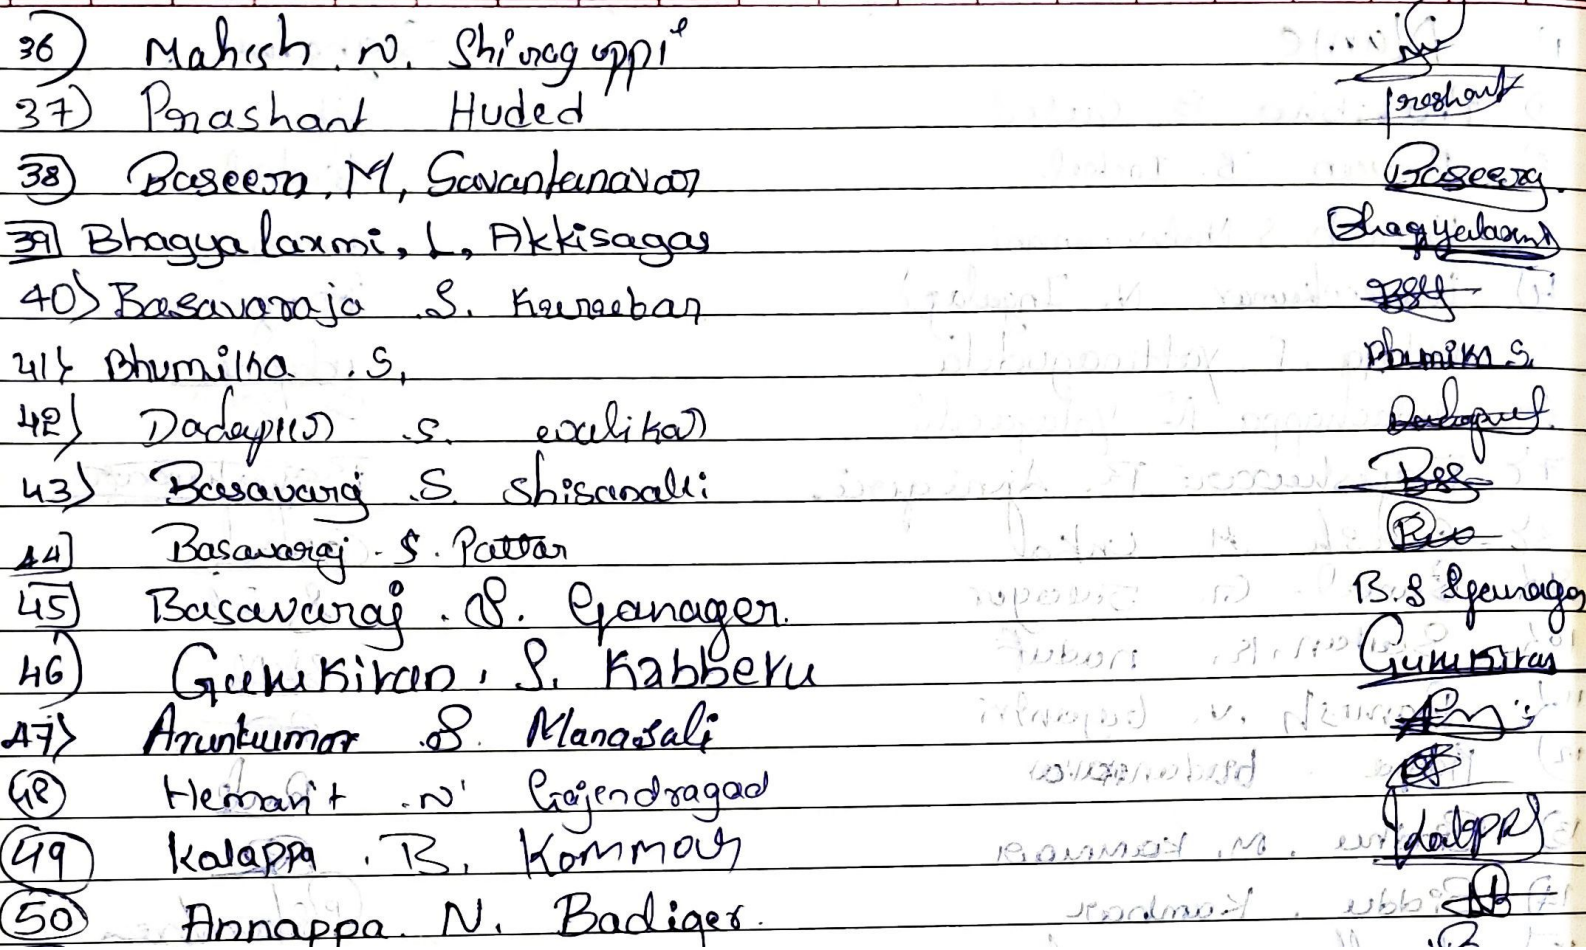 36) Mahesh. N. Shiraguppi
37) Prashant Huded Prashant
38) Baseera, M, Savantanavar Baseera
39) Bhagyalaxmi, L, Akkisagar Bhagyalaxmi
40) Basavaraja .S. Kuruban BSK
41) Bhumika .S, Bhumika S.
42) Dadapur .S.
43) Basavaraj .S. Shisanalli BSS
44) Basavaraj . S. Pattar
45) Basavaraj . S. Ganager. B.S Ganager
46) Gurukiran . S. Kabberu Gurukiran
47) Arunkumar .S. Managali
48) Hemant .N. Gajendragad
49) Kalappa . B. Kammar Kalappa
50) Annappa. N. Badiger.